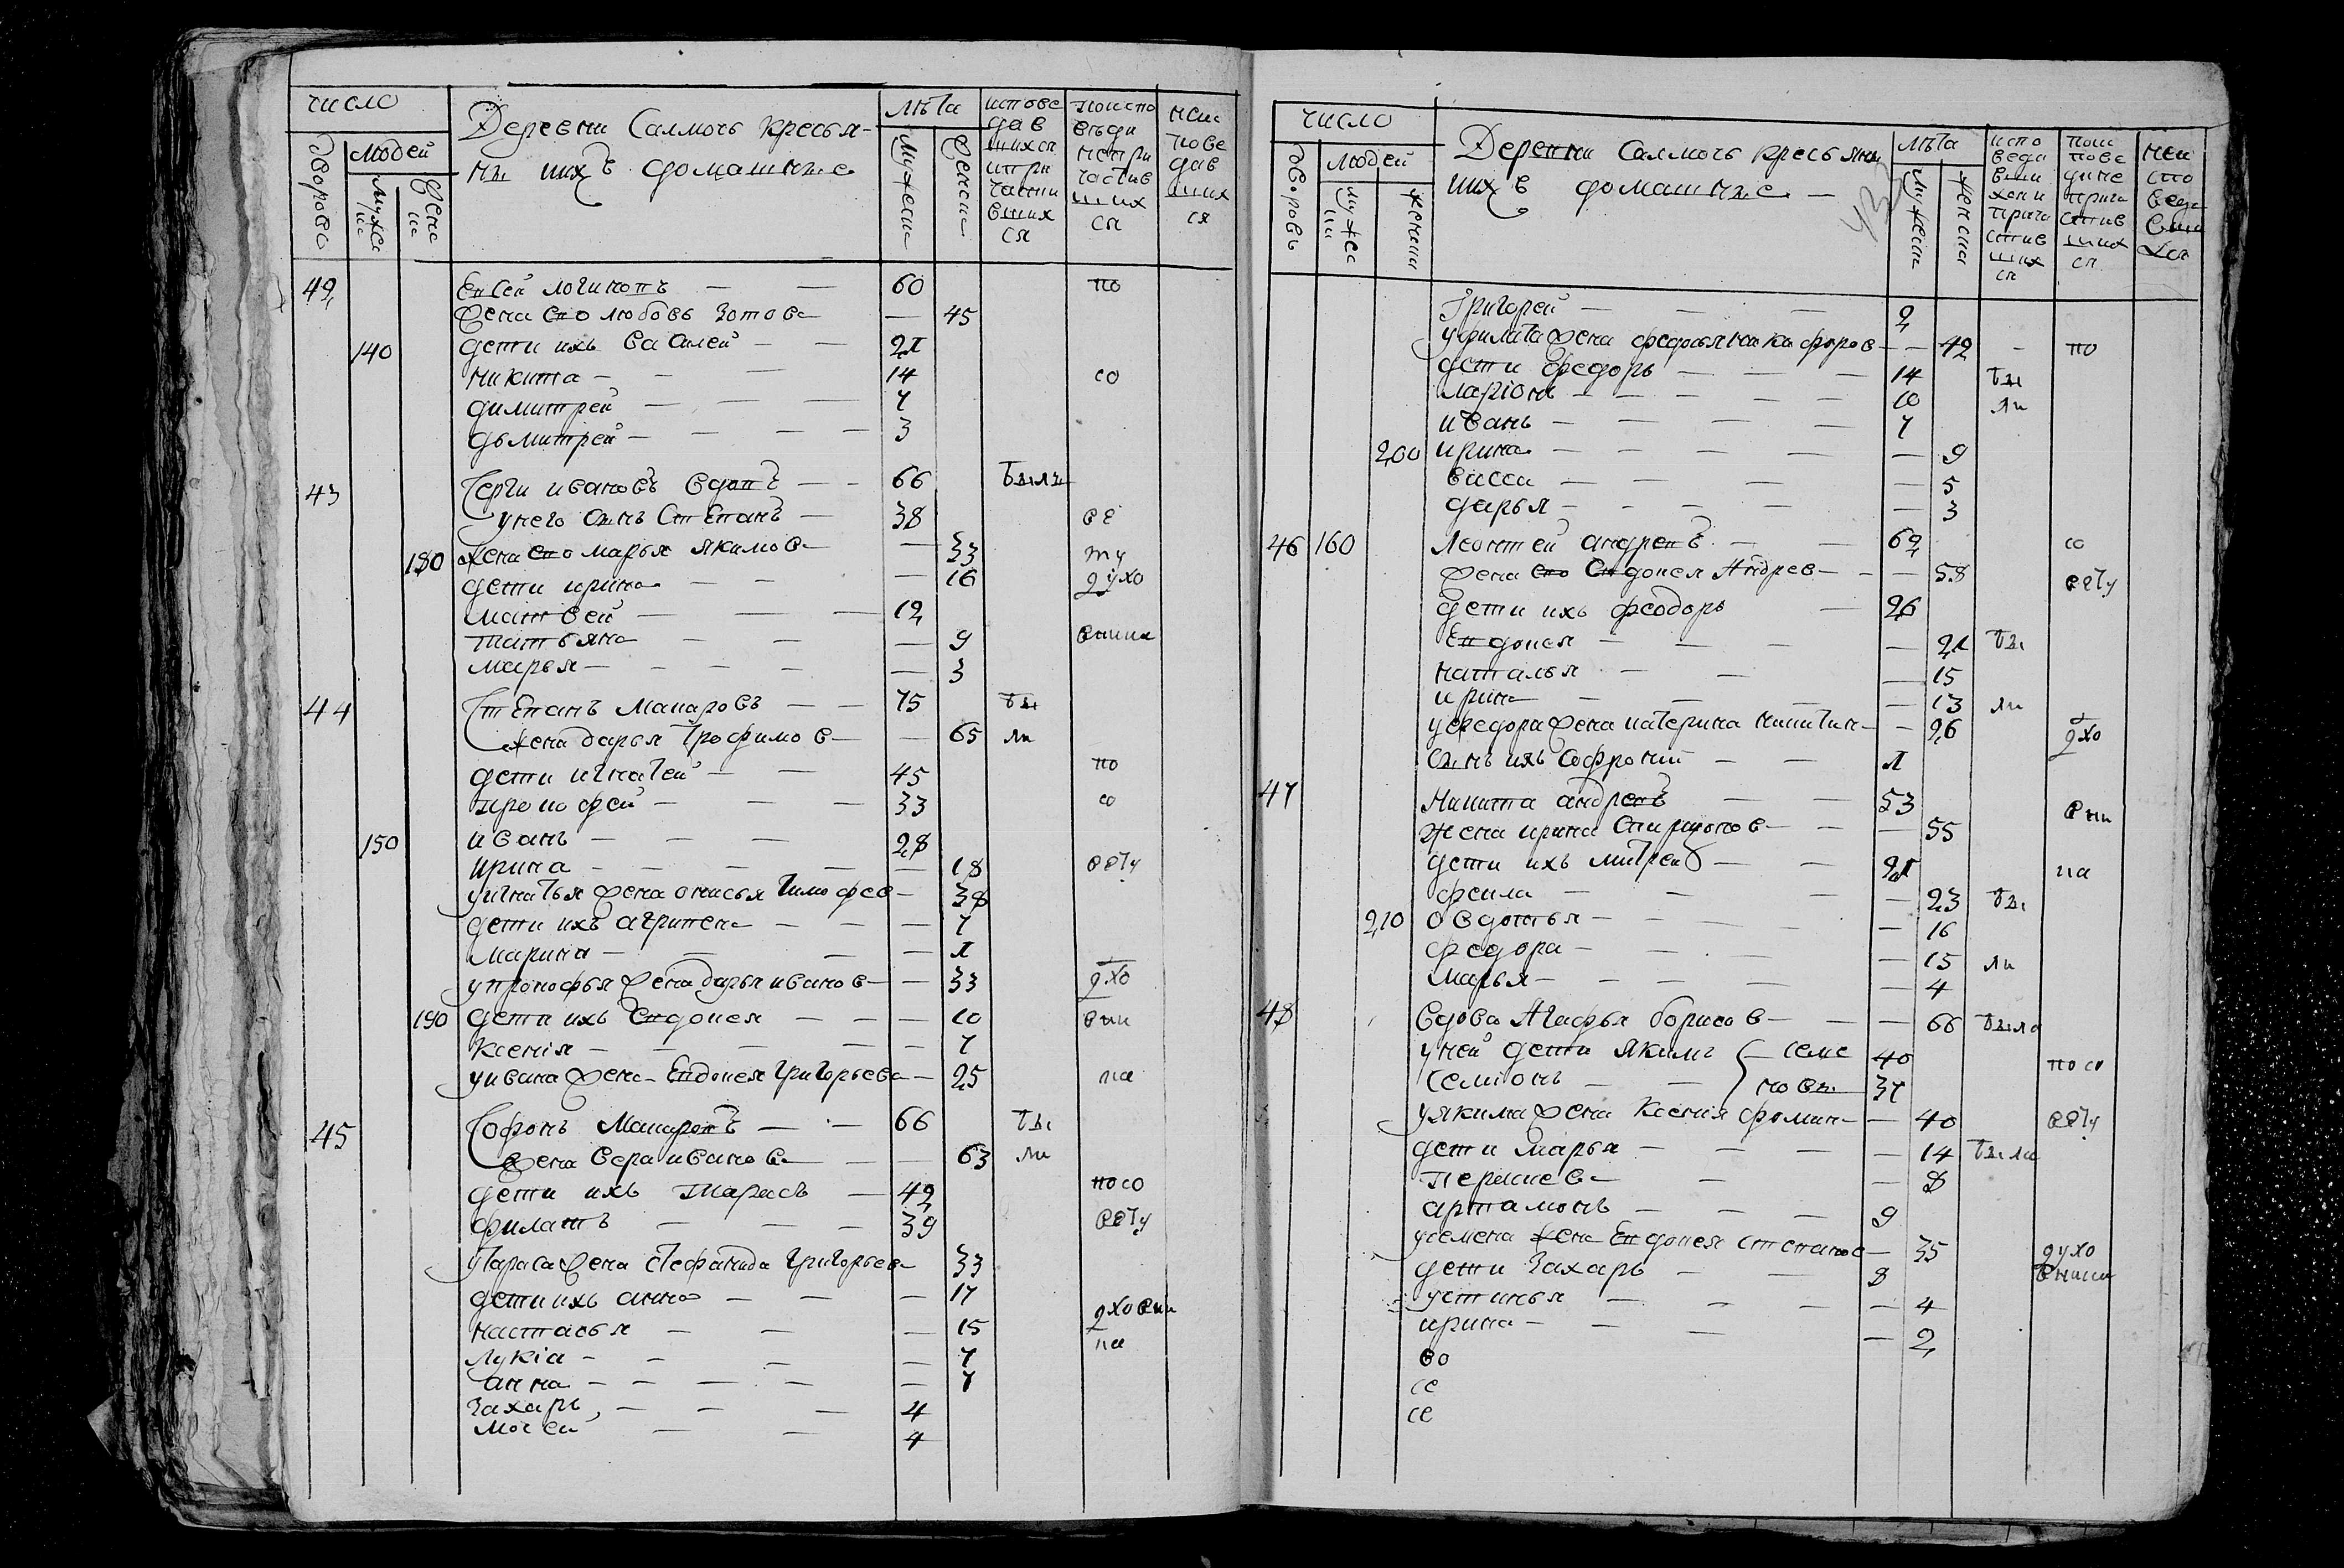 число
дворовъ
людей
мужеск
женск
Деревни Салмочь кресья-
ны ихъ домашные
лѣта
мужеск
женски
испове
дав
шихся
ипри
части
вших
ся
поиспо
вѣди
непри
частив
ших
ся
неис
пове
дав
ших
ся
42 Евсей логиновъ — — 60 по
Жена ево любовь Зотова — 45
140 дети ихъ Василей — — 21
никита — — — 14 со
димитрей — — — 7
дьмитрей — — — — 3
43 Серги ивановъ вдовъ — — 66 былъ
унего сынъ Степанъ — 38 ве
180 жена ево марья якимова — 33 ту
дети ирина — — — 16 духо
матвеи — — — 12
татьяна — — — 9 вника
марья — — — — — 3
44 Степанъ Макаровъ — — 75 бы
жена дарья Трофимова — — 65 ли
дети игнатей — — 45 по
прокофей — — — 33 со
150 иванъ — — — 28
ирина — — — — 18 вѣту
уигнатья жена онисья тимофеева — 38
дети ихъ агрипена — — — 7
марина — — — — 1
упрокофья жена дарья иванова — — 33 дхо
190 дети ихъ Евдокея — — — 10 вни
Ксенія — — — — — 7
уивана жена Евдокея Григорьева — 25 ка
45 Софонъ Макаровъ — — 66 бы
жена вера иванова — — 63 ли
дети ихъ Тарасъ — 42 посо
филатъ — — — 39 вѣту
утараса жена стефанида григорьева 33
дети ихъ анна — — — 17 дховни
настасья — — — 15 ка
Лукіа — — — — 7
анна — — — — — 7
Захаръ — — — 4
Мосеи — — 4
число
дворовъ
людей
мужес
ки
женски
Деревни Салмочь кресьяни
ихъ домашные —
лѣта
мужески
женски
испо
веда
вши
хси и
прича
стив
ших
ся
поис
пове
дине
прича
стив
ших
ся
неи
спо
веда
вши
хся
Григорей — — — 2
уфилата жена федосья никифоров — — 42 — по
дети Федоръ — — — 14 бы
ларіонъ — — — — — 10 ли
иванъ — — — — 7
200 ирина — — — — — — 9
васса — — — — 5
дарья — — — — — 3
46 160 Леонтей андревъ — — 62 со
жена ево Евдокея Андрев — — — 58 вѣту
дети ихъ феодоръ — 26
Евдокея — — — — 21 бы
наталья — — — 15
ирина — — — — 13 ли
уфедора жена катерина никитин — — 26 дхо
сынъ ихъ Софроній — — 1
47 Никита андревъ — — 53 вни
жена ирина Спиридонов — — — 55
дети ихъ митрей — — 21 ка
фекла — — — — 23 бы
210 овдотья — — — — — 16
федора — — — — 15 ли
марья — — — — — 4
48 вдова Агафья борисов — — — 66 было
уней дети якимъ — семе 40 посо
Семіонъ — — новы 37
уякима жена Ксенія фомин — — 40 вѣту
дети марья — — — — 14 были
пераскев — — — 8
артамонъ — — — 9
усемена жена Евдокея степанов — 35 духо
дети Захаръ — — 8 вники
устинья — — — — 4
ирина — — — — 2
во
се
се